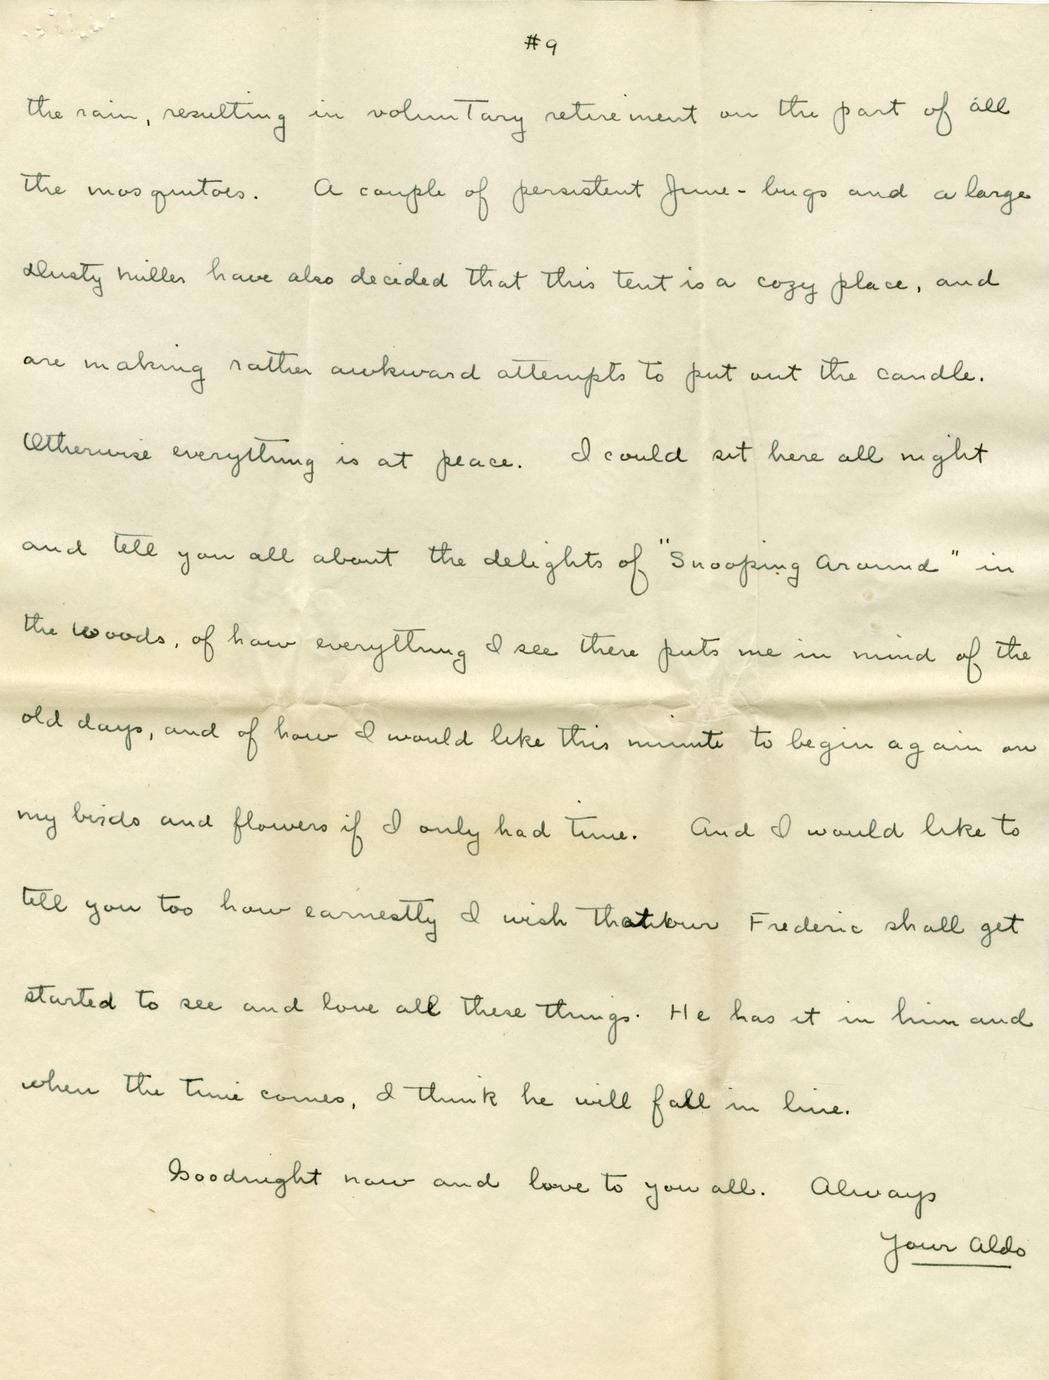 #9
the rain, resulting in voluntary retirement on the part of all
the mosquitoes. A couple of persistent June-bugs and a large
Dusty Miller have also decided that this tent is a cozy place, and
are making rather awkward attempts to put out the candle.
Otherwise everything is at peace. I could sit here all night
and tell you all about the delights of "Snooping Around" in
the woods, of how everything I see there puts me in mind of the
old days, and of how I would like this minute to begin again on
my birds and flowers if I only had time. And I would like to
tell you too how earnestly I wish that our Frederic shall get
started to see and love all these things. He has it in him and
when the time comes, I think he will fall in line.
Goodnight now and love to you all. Always
Your Aldo